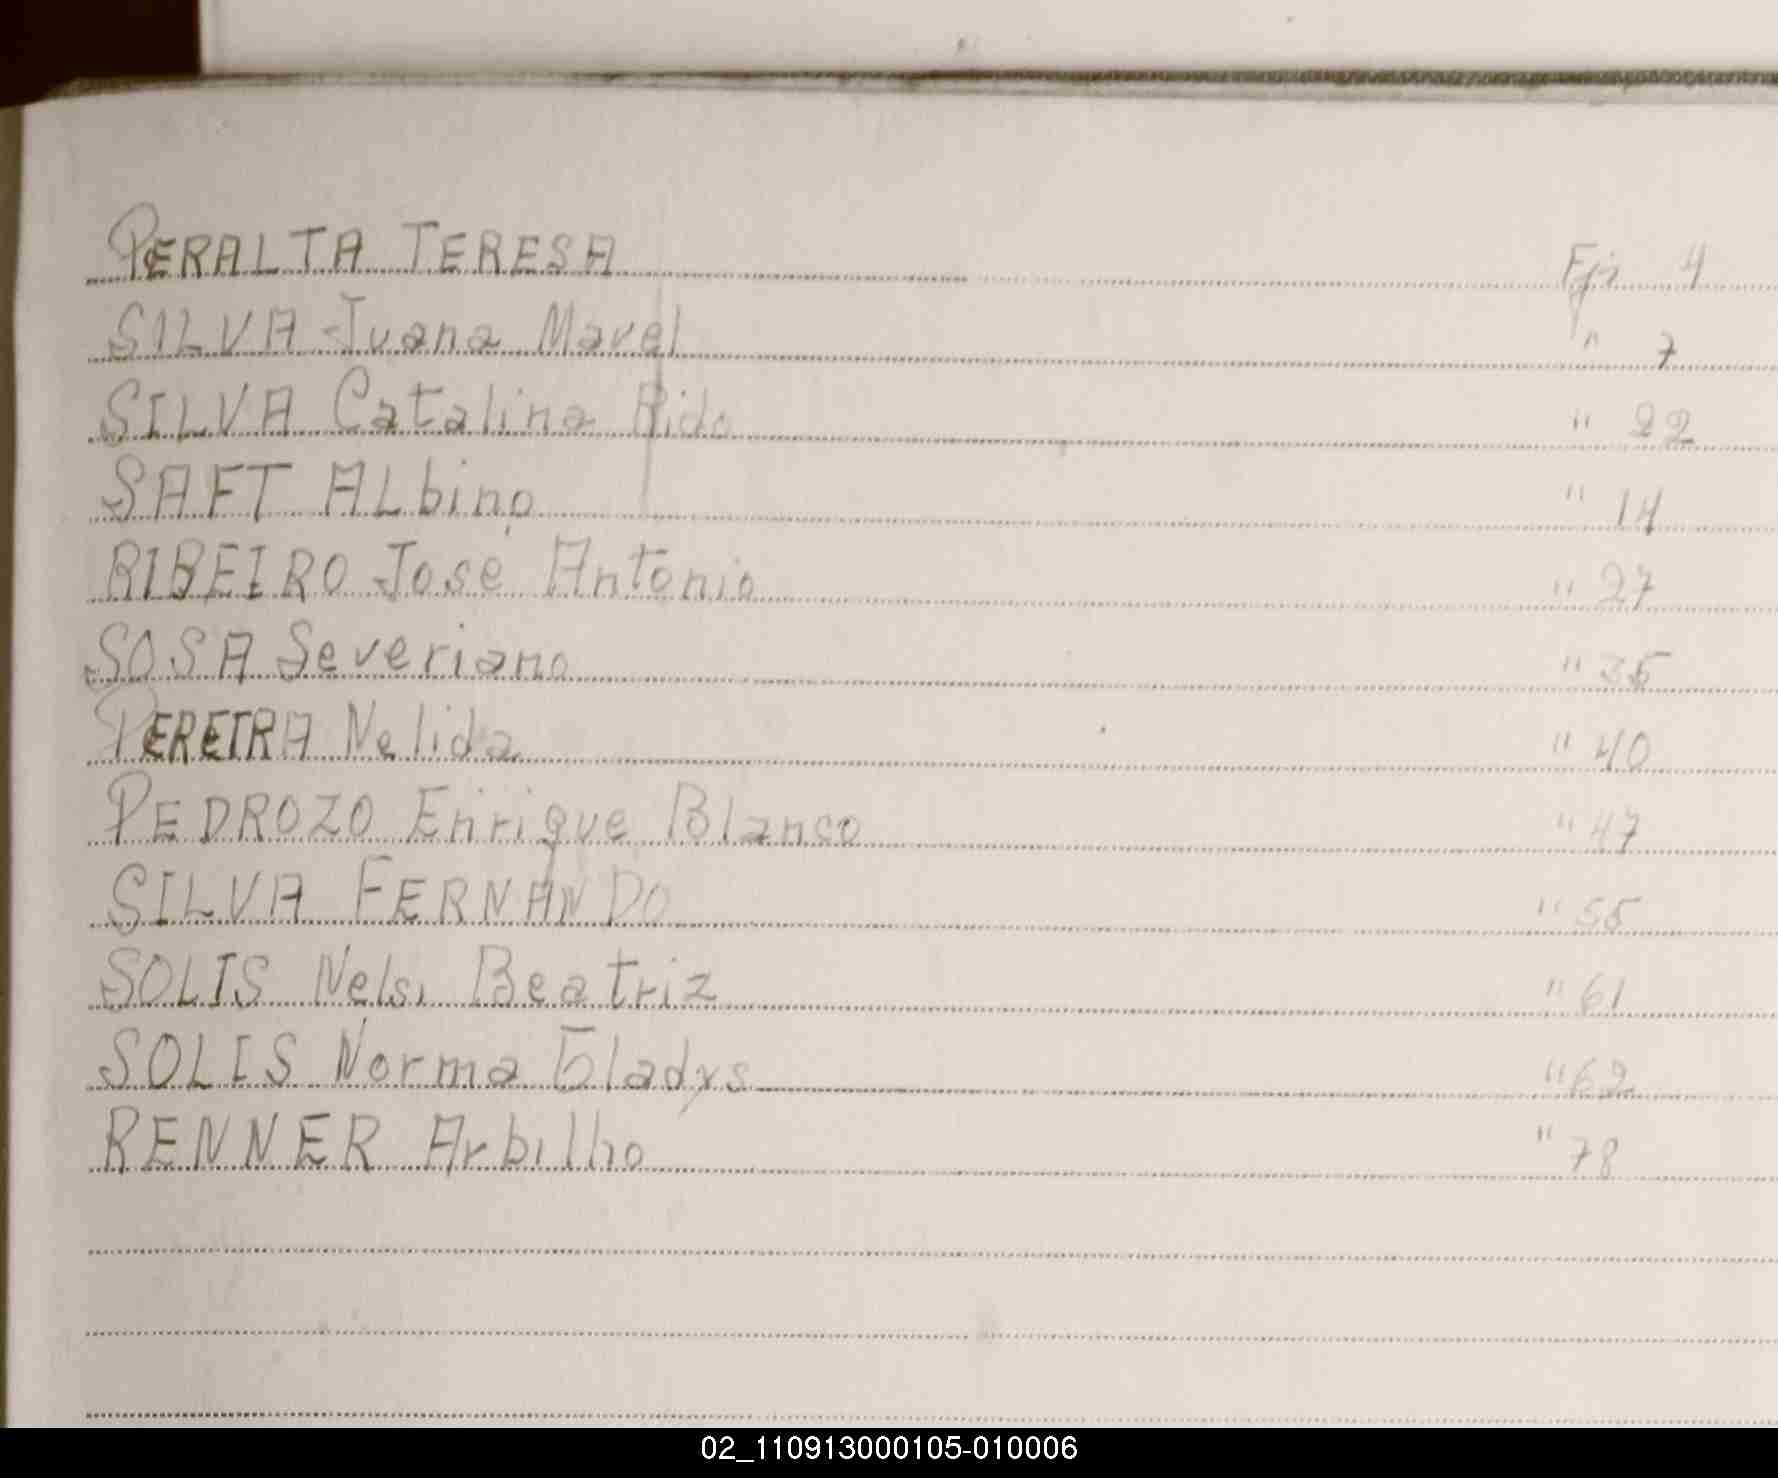 PERALTA TERESA Fjs 4
SILVA Juana Mavel " 7
SILVA Catalina Rido " 22
SAFT ALbino " 14
RIBEIRO José Antonio " 27
SOSA Severiano " 35
PEREIRA Nelida " 40
PEDROZO Enrique Blanco " 47
SILVA FERNANDO " 55
SOLIS Nelsi Beatriz " 61
SOLIS Norma Gladys " 62
RENNER Arbilho " 78
02_110913000105-010006